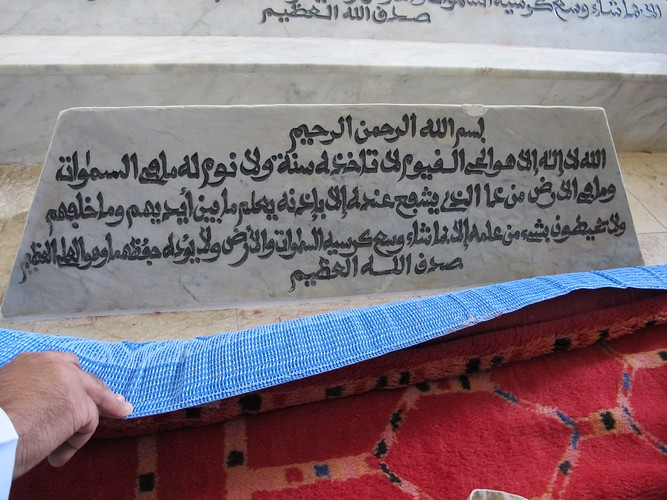 الا بما شاء وسع كرسيه السموات
صدق الله العظيم
بسم الله الرحمن الرحيم
الله لا إله إلا هو الحي القيوم لا تاخذه سنة ولا نوم له ما في السموات
وما في الارض من ذا الذي يشفع عنده إلا بإذنه يعلم ما بين أيديهم وما خلفهم
ولا يحيطون بشيء من علمه إلا بما شاء وسع كرسيه السموات والأرض ولا يؤده حفظهما وهو العلي العظيم
صدق اللـه العظيم